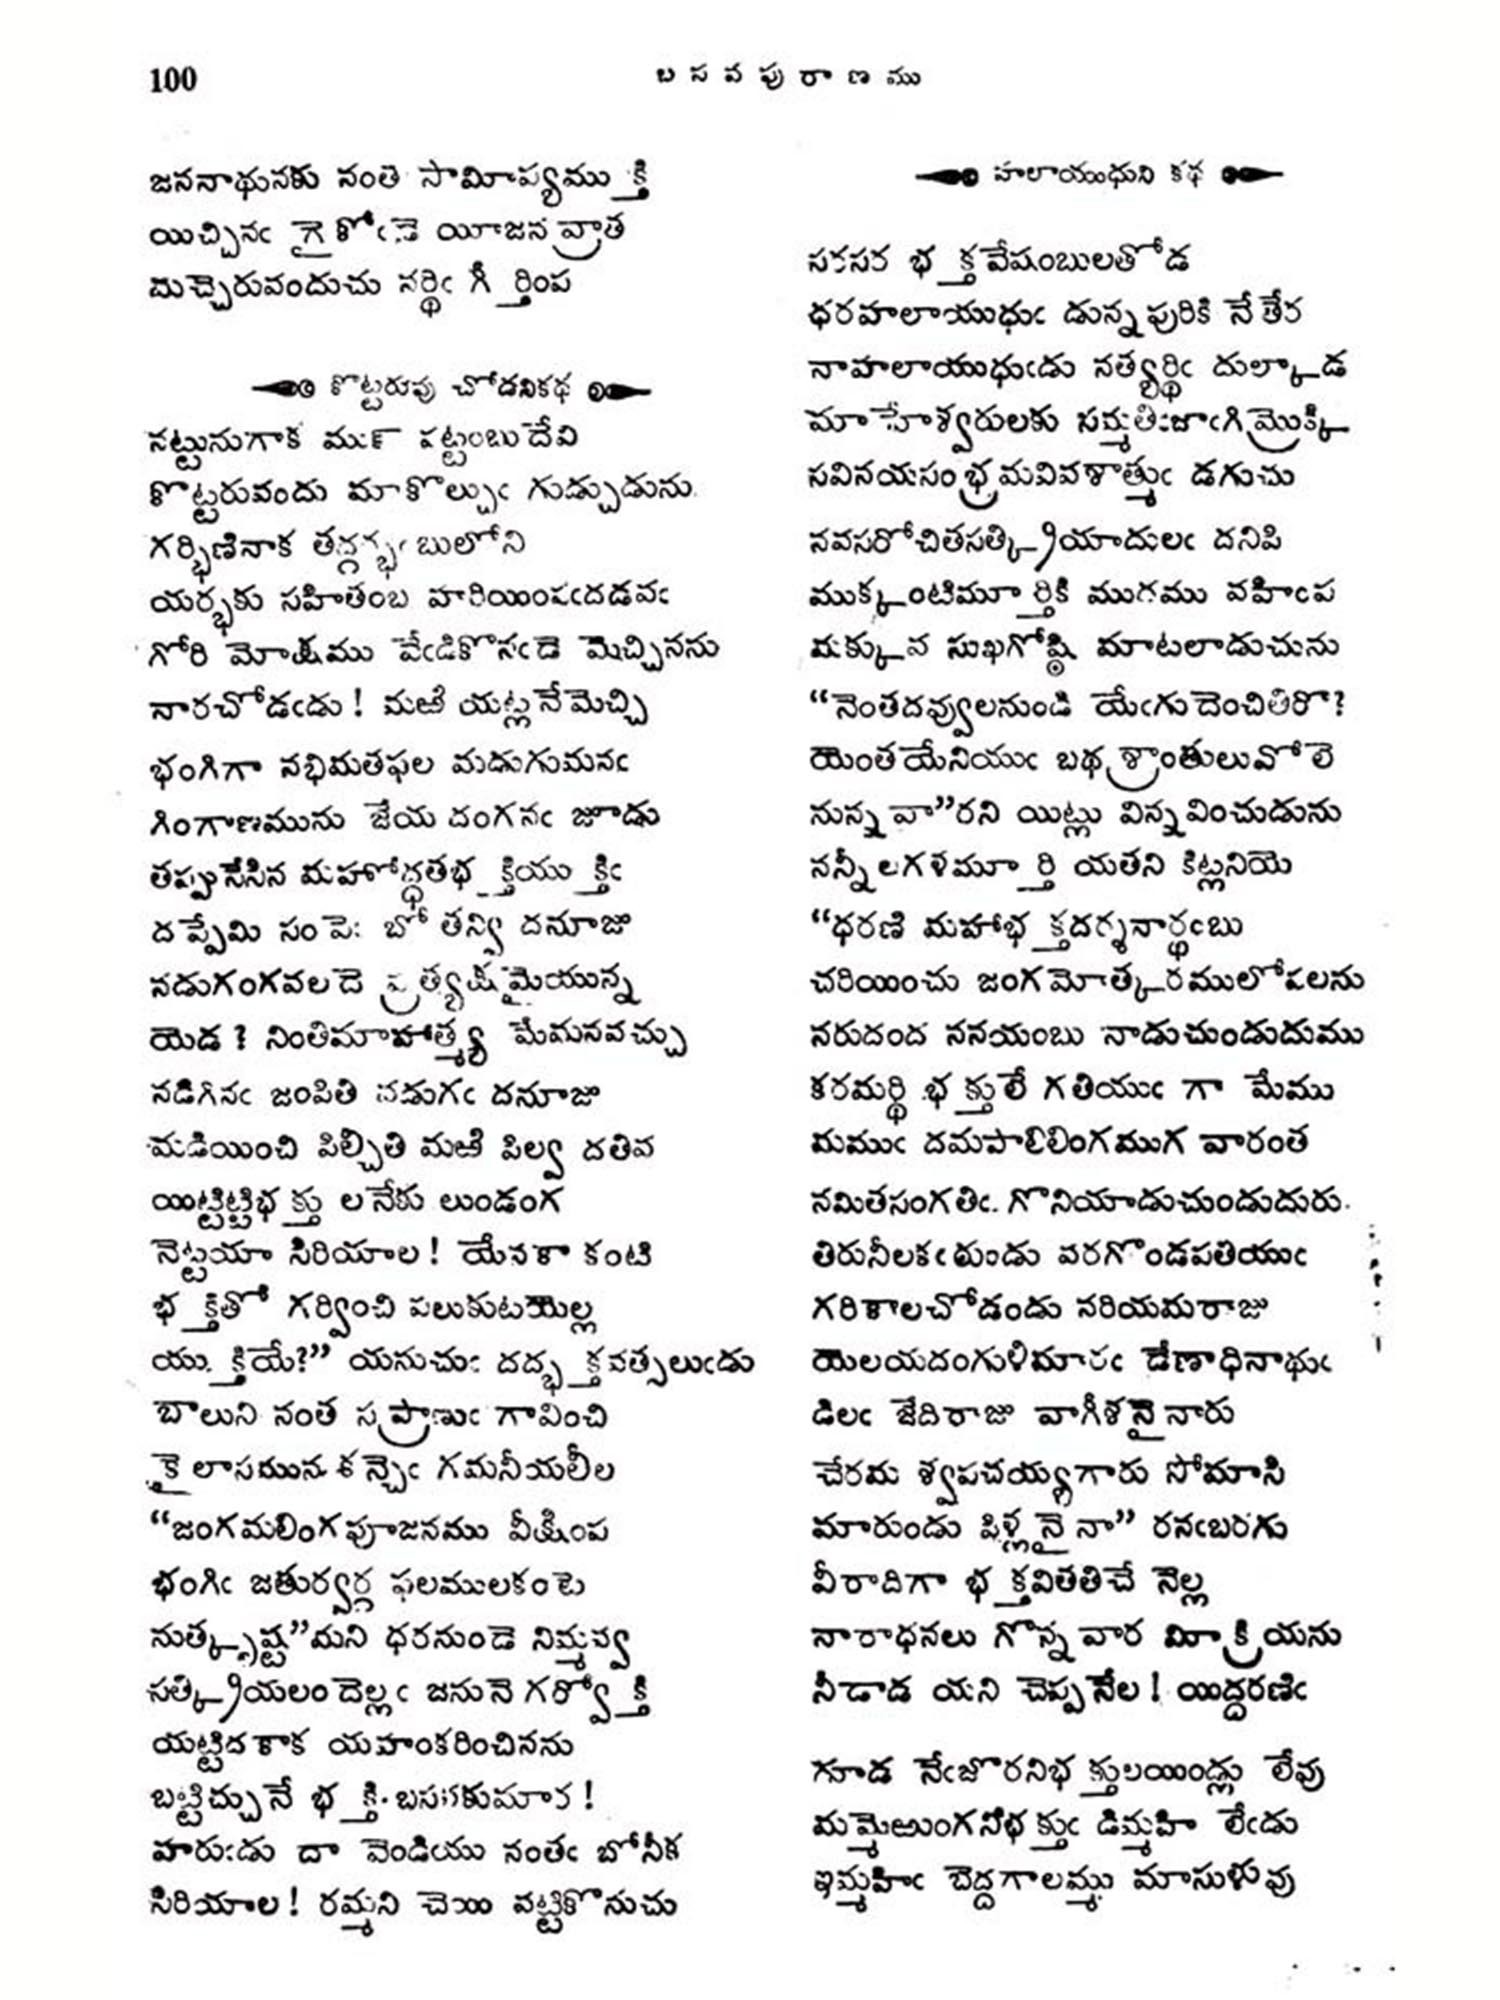 100
బ స వ పు రా ణ ము
జననాథునకు నంతె సామీప్యముక్తి
యిచ్చినఁ గైకోఁడె యీజనవ్రాత
మచ్చెరువందుచు నర్థిఁ గీర్తింప
కొట్టరువు చోడనికథ
నట్టునుగాక మున్ పట్టంబుదేవి
కొట్టరువందు మాకొల్చుఁ గుడ్చుడును
గర్భిణినాక తద్గర్భంబులోని
యర్భకు సహితంబ హరియింపఁదడవఁ
గోరి మోక్షము వేఁడికొనఁడె మెచ్చినను
నారచోడఁడు! మఱి యట్ల నేమెచ్చి
భంగిగా నభిమతఫల మడుగుమనఁ
గింగాణమును జేయ దంగనఁ జూడు
తప్పుసేసిన మహోద్ధతభక్తియుక్తిఁ
దప్పేమి సంపెఁ బో తన్వి దనూజు
నడుగంగవలదె ప్రత్యక్షమైయున్న
యెడ? నింతిమాహాత్మ్య మేమనవచ్చు
నడిగినఁ జంపితి నడుగఁ దనూజు
మడియించి పిల్చితి మఱి పిల్వ దతివ
యిట్టిట్టిభక్తు లనేకు లుండంగ
నెట్టయా సిరియాల! యేనకా కంటి
భక్తితో గర్వించి పలుకుటయెల్ల
యుక్తియే?” యనుచుఁ దద్భక్తవత్సలుఁడు
బాలుని నంత సప్రాణుఁ గావించి
కైలాసమున కన్చెఁ గమనీయలీల
“జంగమలింగపూజనము వీక్షింప
భంగిఁ జతుర్వర్గ ఫలములకంటె
నుత్కృష్ట”మని ధరనుండె నిమ్మవ్వ
సత్క్రియలం దెల్లఁ జనునె గర్వోక్తి
యట్టిదకాక యహంకరించినను
బట్టిచ్చునే భక్తి బసవకుమార!
హరుఁడు దా వెండియు నంతఁ బోనీక
సిరియాల! రమ్మని చెయి వట్టికొనుచు
హలాయుధుని కథ
సరసర భక్తవేషంబులతోడ
ధరహలాయుధుఁ డున్నపురికి నేతేర
నాహలాయుధుఁడు నత్యర్థిఁ దుల్కాడ
మాహేశ్వరులకు సమ్మతిఁజాఁగి మ్రొక్కి
సవినయసంభ్రమవివశాత్ముఁ డగుచు
నవసరోచితసత్క్రియాదులఁ దనిపి
ముక్కంటిమూర్తికి ముగము వహింప
మక్కువ సుఖగోష్ఠి మాటలాడుచును
“నెంతదవ్వులనుండి యేఁగుదెంచితిరో?
యెంతయేనియుఁ బథశ్రాంతులువోలె
నున్నవా”రని యిట్లు విన్నవించుడును
నన్నీలగళమూర్తి యతని కిట్లనియె
“ధరణి మహాభక్తదర్శనార్థంబు
చరియించు జంగమోత్కరములోపలను
నరుదంద ననయంబు నాడుచుండుదుము
కరమర్థి భక్తులే గతియుఁ గా మేము
మముఁ దమపాలిలింగముగ వారంత
నమితసంగతిఁ గొనియాడుచుండుదురు.
తిరునీలకఁఠుండు వరగొండపతియుఁ
గరికాలచోడండు నరియమరాజు
యెలయదంగుళిమారఁ డేణాధినాథుఁ
డిలఁ జేదిరాజు వాగీశనైనారు
చేరమ శ్వపచయ్యగారు సోమాసి
మారుండు పిళ్లనైనా” రనఁబరగు
వీరాదిగా భక్తవితతిచే నెల్ల
నారాధనలు గొన్నవార మీక్రియను
నీడాడ యని చెప్పనేల! యిద్ధరణిఁ
గూడ నేఁజొరనిభక్తులయిండ్లు లేవు
మమ్మెఱుంగనిభక్తుఁ డిమ్మహి లేఁడు
ఇమ్మహిఁ బెద్దగాలమ్ము మాసుళువు